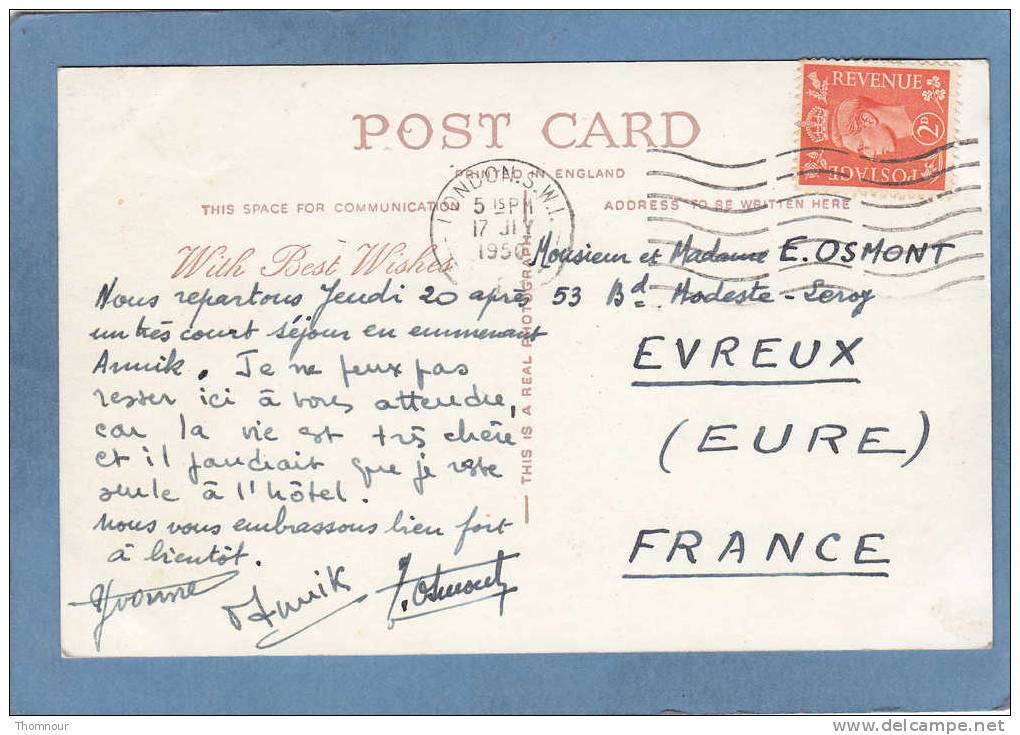 REVENUE
2D
POSTAGE
POST CARD
PRINTED IN ENGLAND
LONDON.S.W.1.
5 15 PM
17 JLY
1950
THIS SPACE FOR COMMUNICATION
ADDRESS TO BE WRITTEN HERE
THIS IS A REAL PHOTOGRAPH
With Best Wishes
Nous repartons Jeudi 20 après
un très court séjour en emmenant
Annik. Je ne peux pas
rester ici à vous attendre,
car la vie est très chère
et il faudrait que je reste
seule à l'hôtel.
Nous vous embrassons bien fort
à bientôt.
Yvonne
Annik
J. Osmont
Monsieur et Madame E. OSMONT
53 Bd Modeste-Leroy
EVREUX
(EURE)
FRANCE
Thomnour
www.delcampe.net